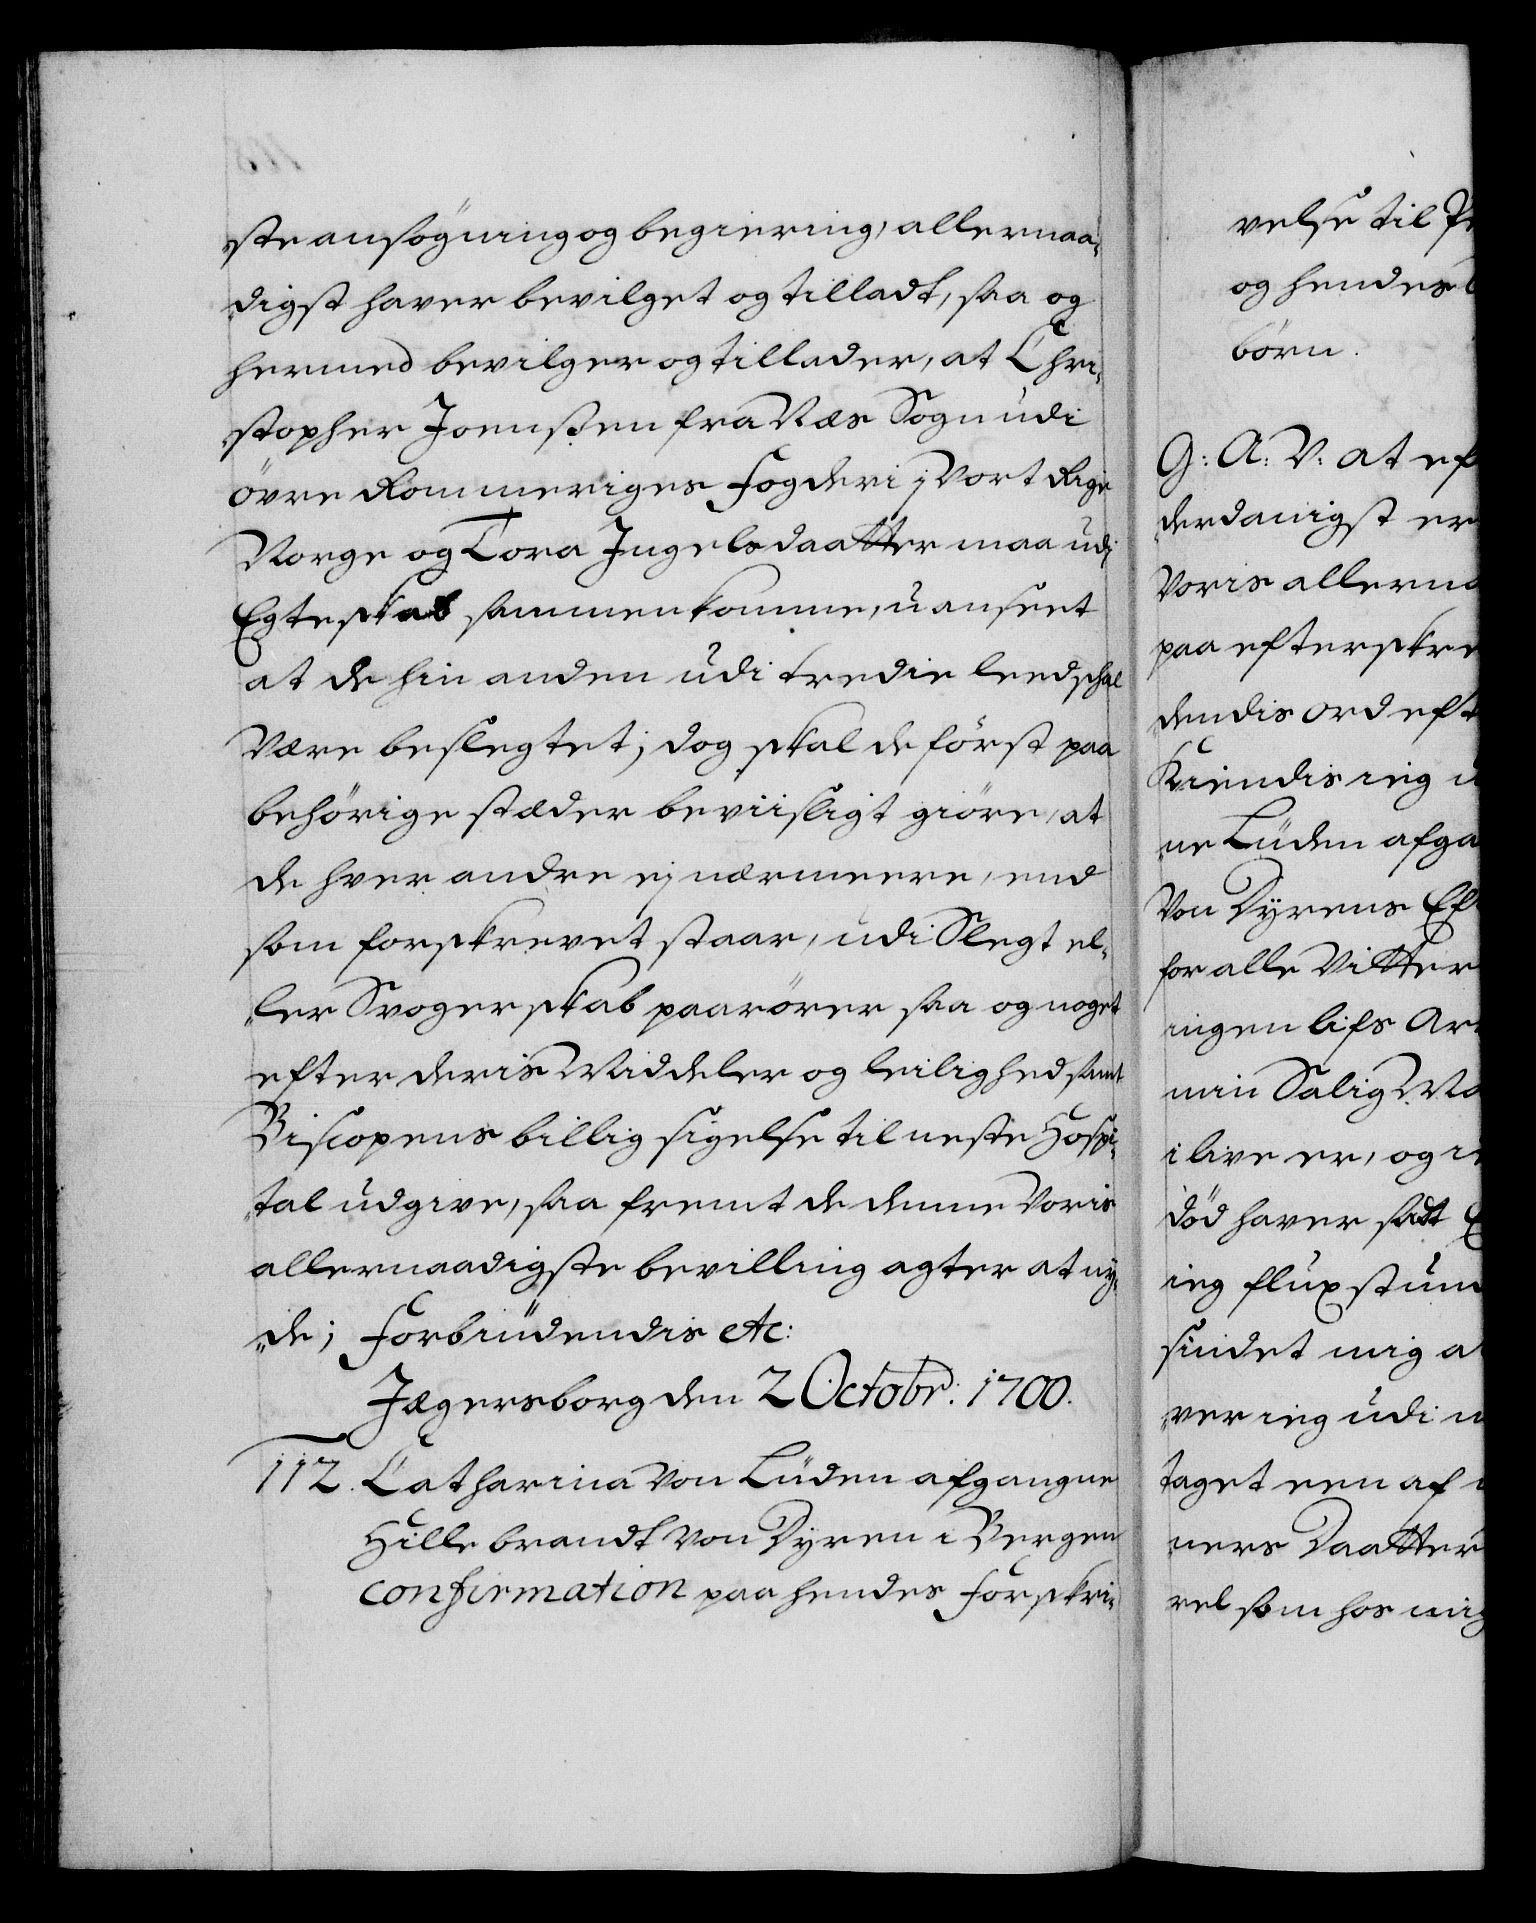 ste ansögning og begiering, allernaa-
digst haver bevilget og tilladt, saa og
hermed bevilger og tillader, at Chri-
stopher Joenssen fra Næs Sogn udi
övre Rommeriges Fogderi j Vort Rige
Norge og Tora Ingelsdaatter maa udj
Egteskab sammenkomme, uanseet
at de hin anden udi tredie leed schal
være beslegtet; dog skal de först paa
behörige stæder beviisligt giöre, at
de hver andre ej nærmeere, end
som forskrevet staar, udi Slegt el-
ler Svogerskab paarörer saa og noget
efter deris Middeler og leilighed samt
Biscopens billig sigelse til neste Hospi-
tal udgive, saa fremt de denne Voris
allernaadigste bevilling agter at ny-
de; Forbiüdendis etc:
Jægersborg den 2 Octobr: 1700.
112. Catharina von Lüden afgangne
Hillebrandt von Dyren i Bergen
confirmation paa hendes forskri-
velse til
og hendes
börn.
G: A: V: at ef
derdanigst er
Voris allerna
paa efterskre
dendis ord eft
Kiendis ieg u
ne Lüden afga
von Dyrens Ef
for alle vitter
ingen lifs Ar
min Salig Ma
i live er, og i
död haver sadt
ieg flux stun
sindet mig a
ver ieg udi
taget een af
ners Daatter
vel som hos mig